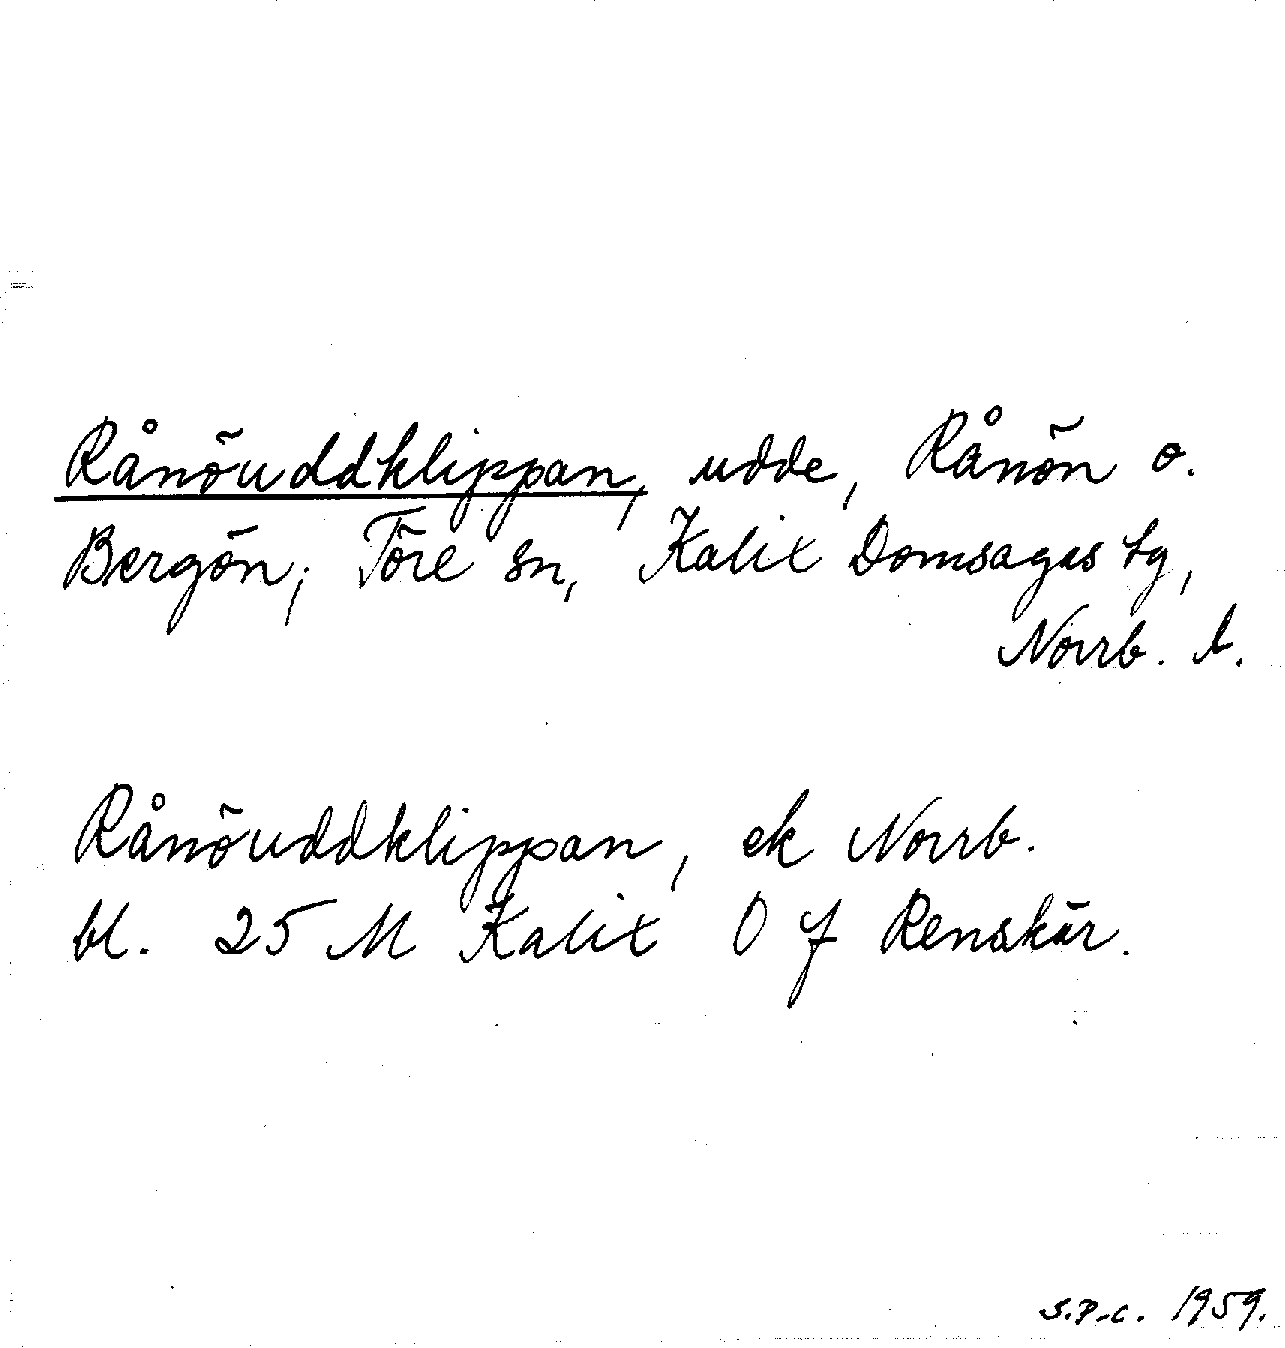 Rånöuddklippan, udde, Rånön o.
Bergön; Töre sn, Kalix Domsagas tg,
Norrb. l.
Rånöuddklippan, ek Norrb.
bl. 25 M Kalix O f Renskär.
S.P-c. 1959.